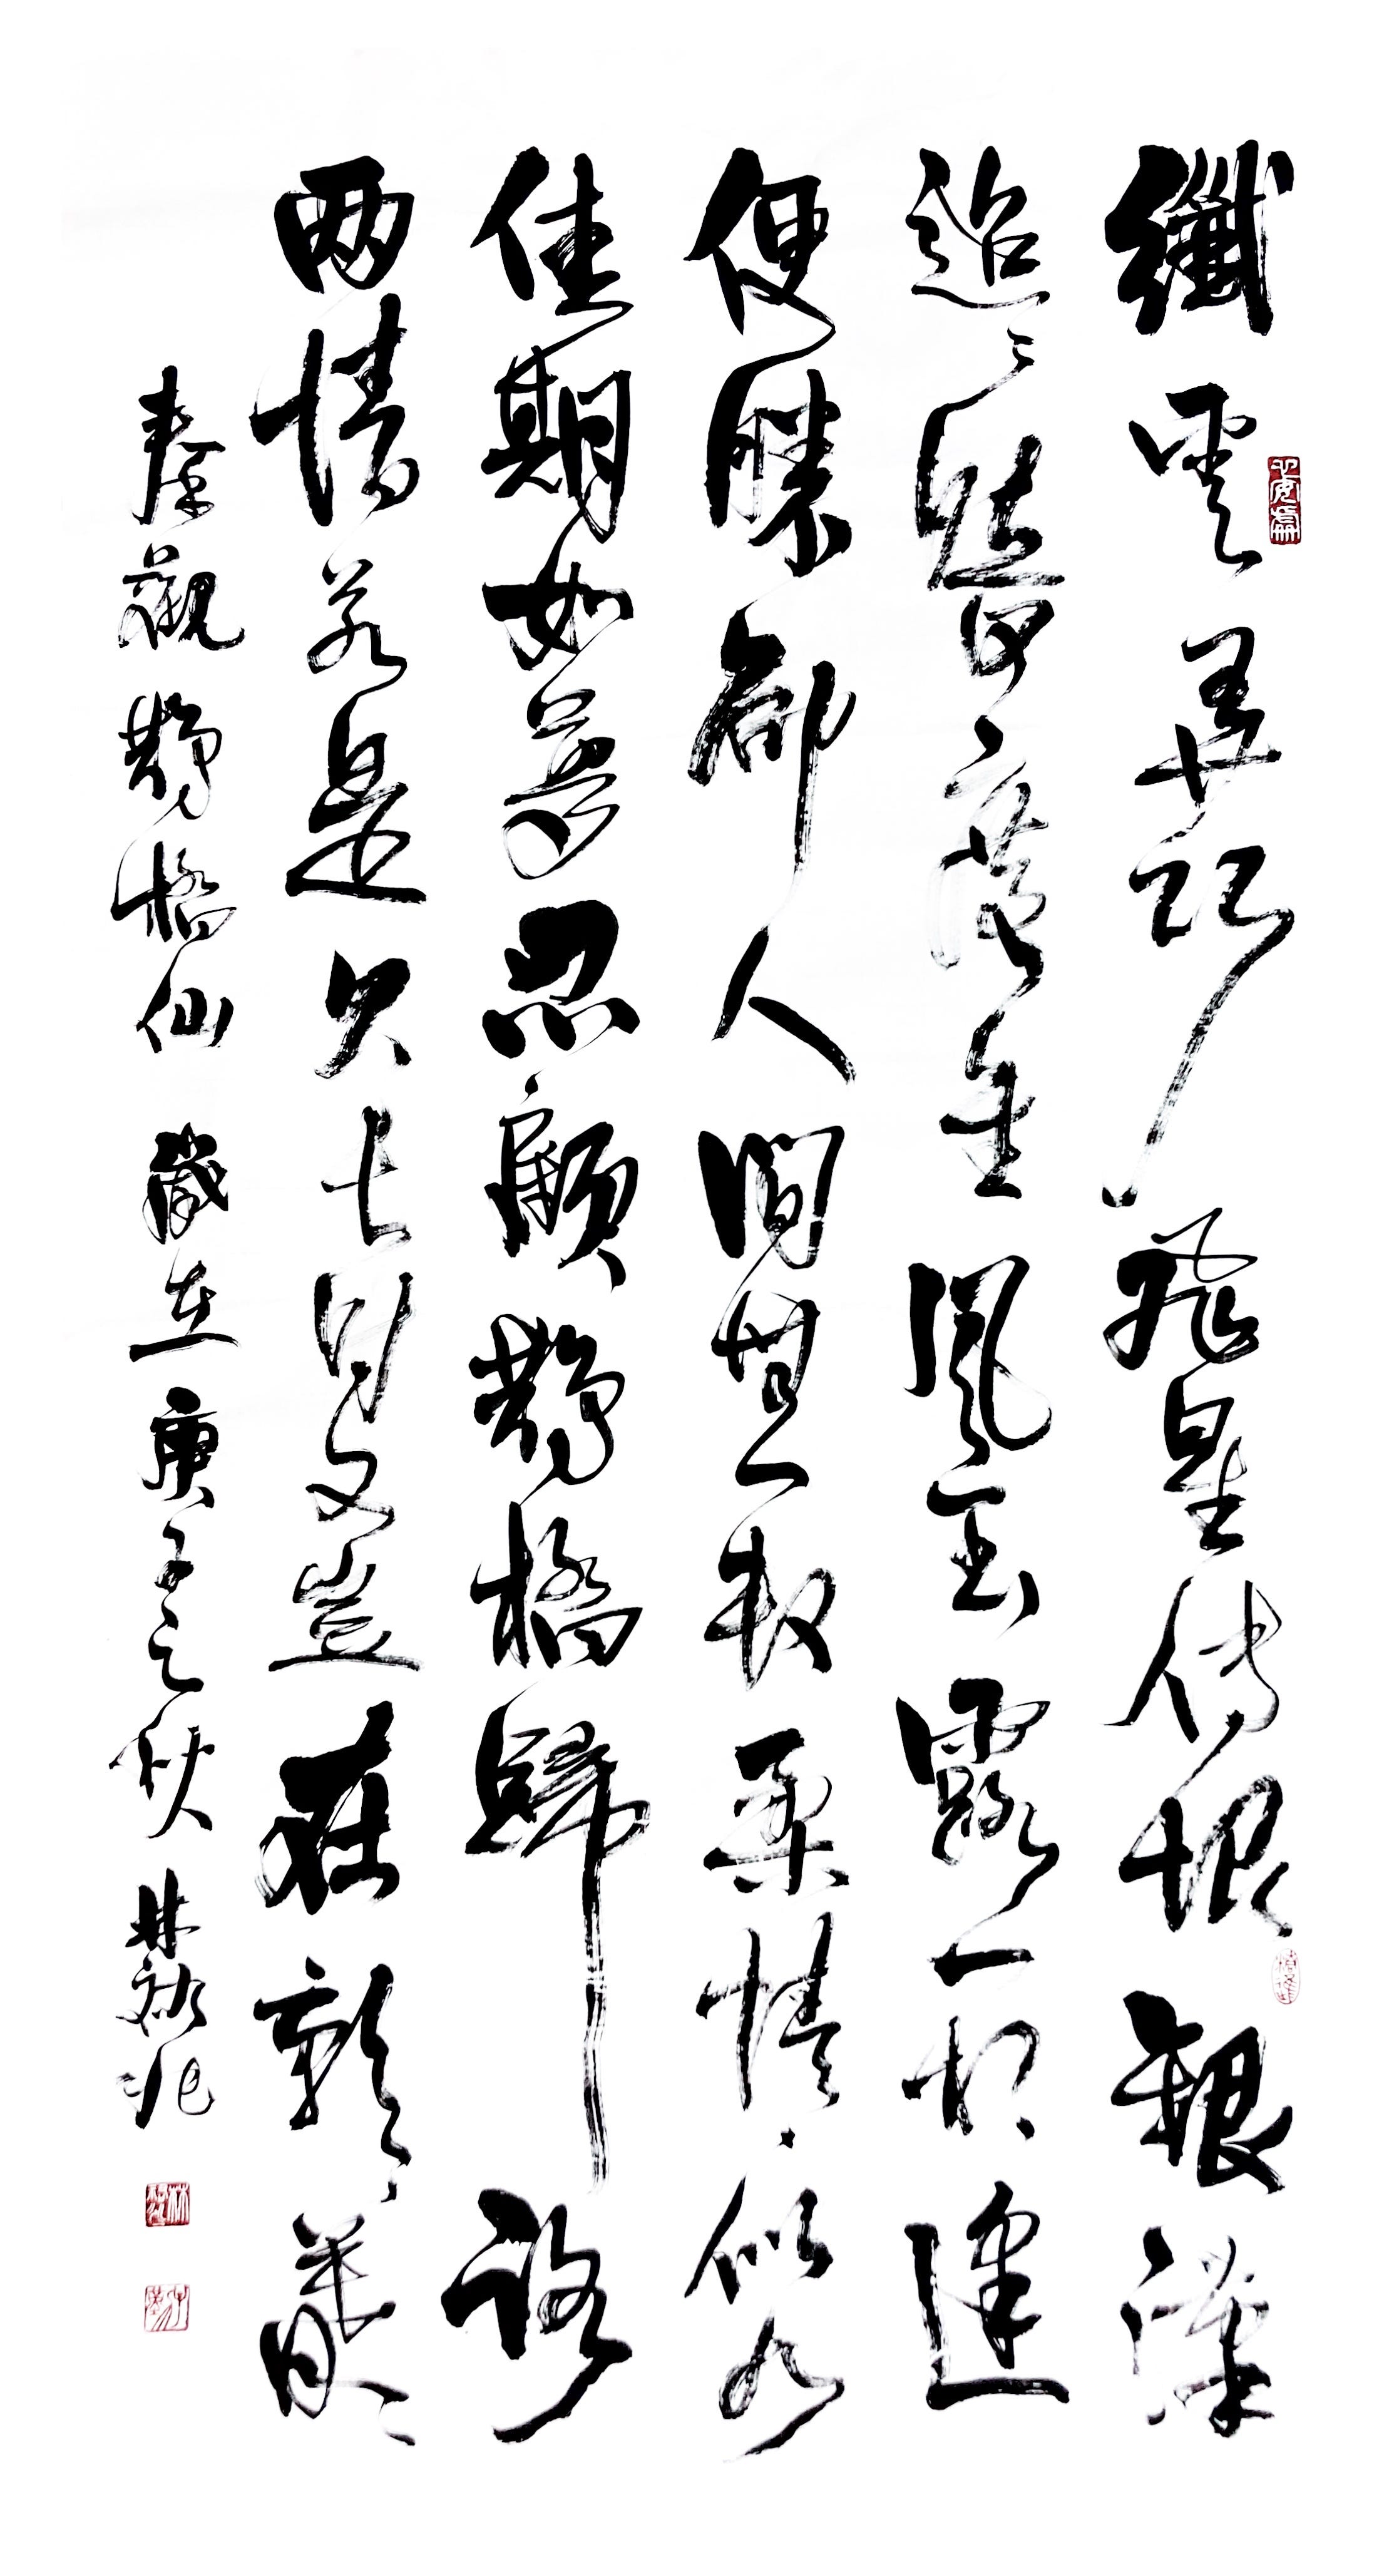 纖雲弄巧飛星傳恨銀漢
迢々暗度金風玉露一相逢
便勝卻人間無數柔情似水
佳期如夢忍顧鵲橋歸路
两情若是久長時又豈在朝々暮々
秦觀鵲橋仙 歲在庚子之秋 林